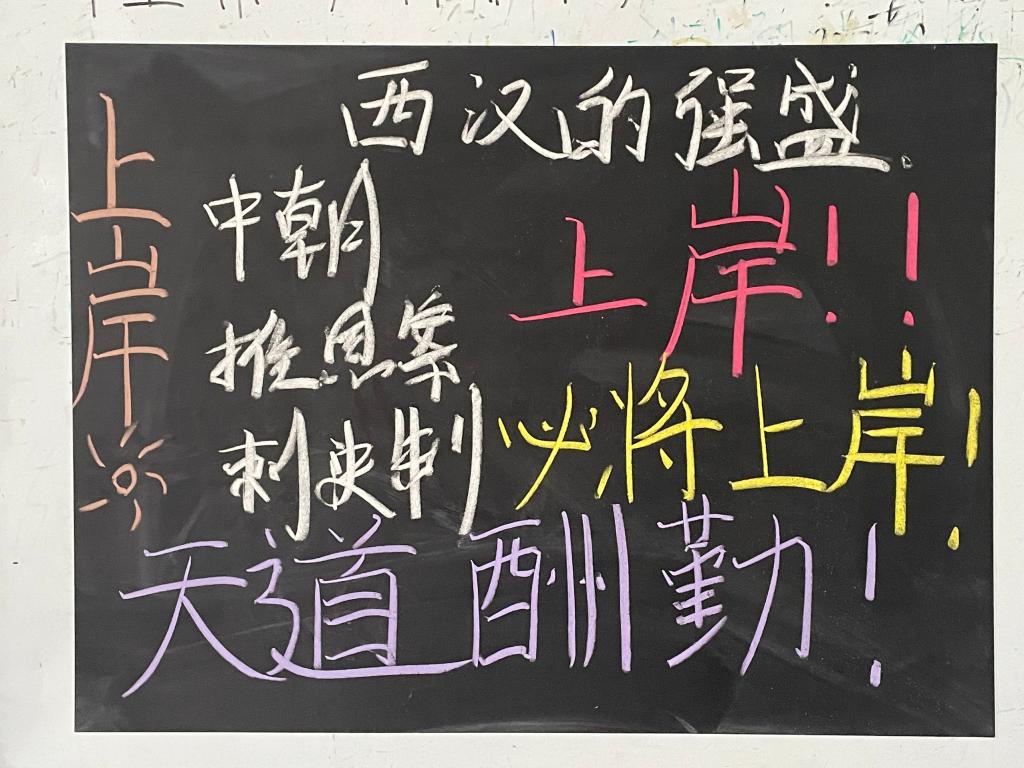 西汉的强盛
上岸
中朝
上岸！！
推恩案
必将上岸！
刺史制
天道酬勤！